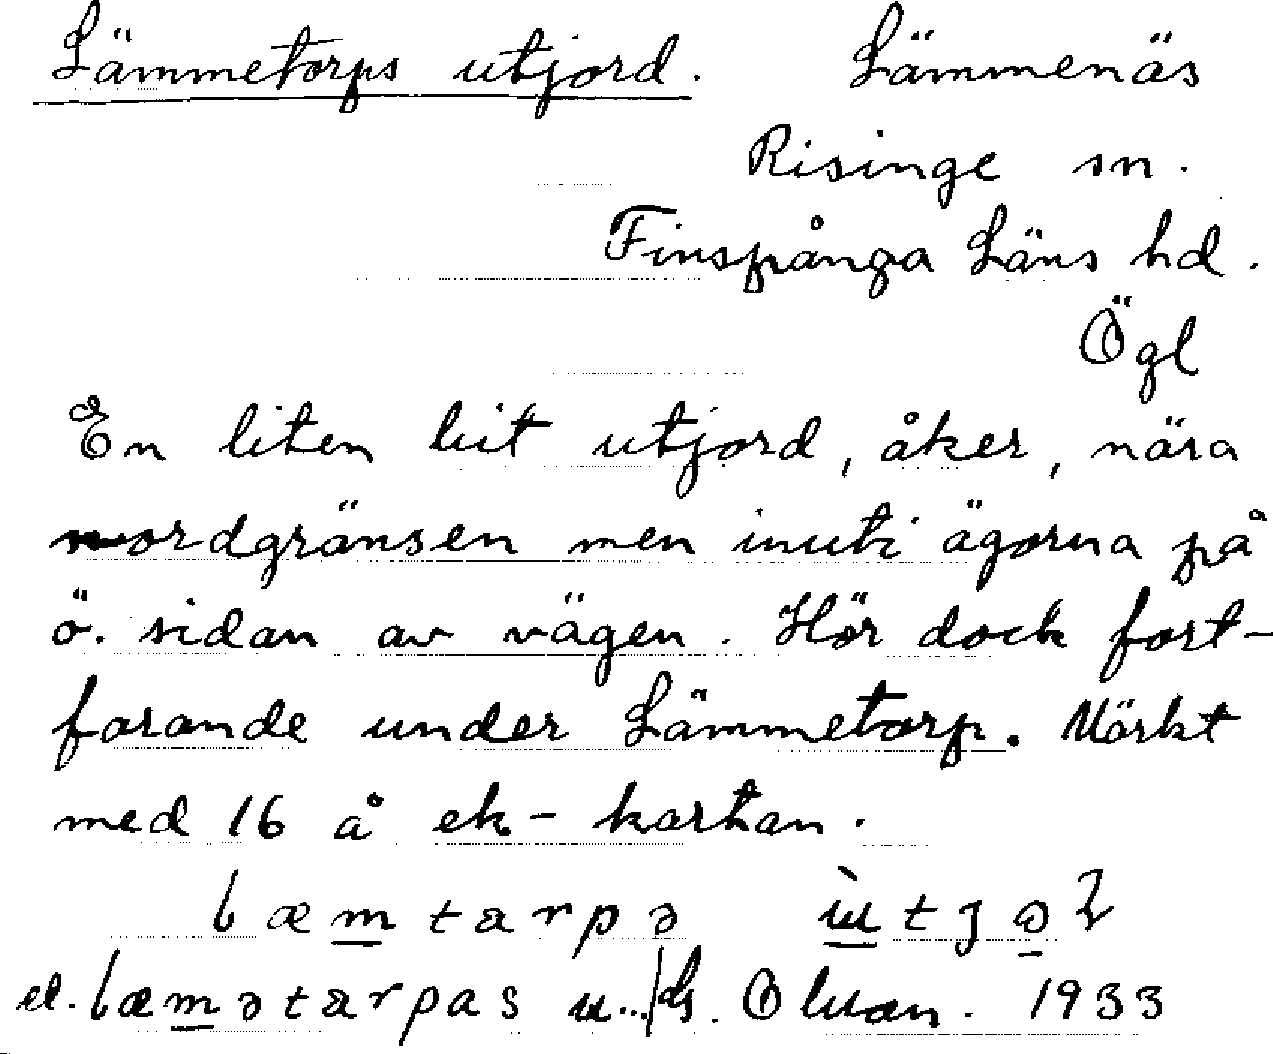 Lämmetorps utjord. Lämmenäs
Risinge sn.
Finspånga Läns hd.
Ögl
En liten bit utjord, åker, nära
nordgränsen men inuti ägorna på
ö. sidan av vägen. Hör dock fort-
farande under Lämmetorp. Märkt
med 16 å ek-kartan.
el. 1933